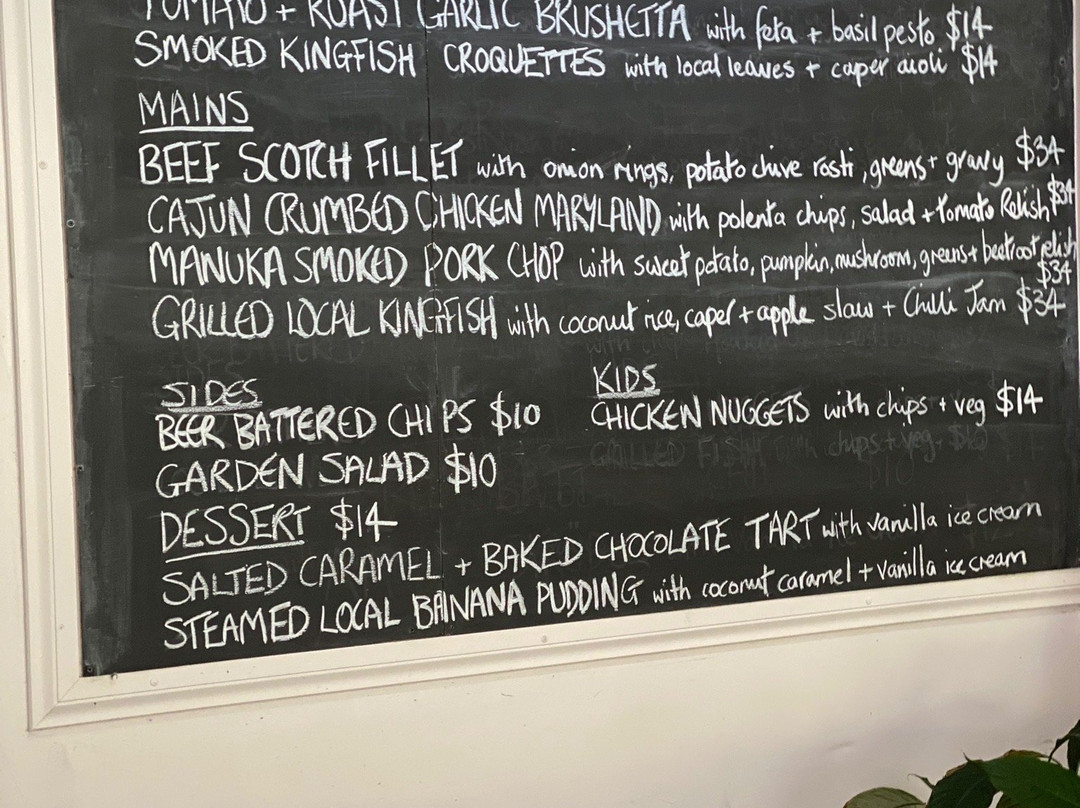 TOMATO + ROAST GARLIC BRUSHETTA with feta + basil pesto $14
SMOKED KINGFISH CROQUETTES with local leaves + caper aioli $14
MAINS
BEEF SCOTCH FILLET with onion rings, potato chive rosti, greens + gravy $34
CAJUN CRUMBED CHICKEN MARYLAND with polenta chips, salad + tomato Relish $34
MANUKA SMOKED PORK CHOP with sweet potato, pumpkin, mushroom, greens + beetroot relish
$34
GRILLED LOCAL KINGFISH with coconut rice, caper + apple slaw + Chilli Jam $34
SIDES
BEER BATTERED CHIPS $10
GARDEN SALAD $10
KIDS
CHICKEN NUGGETS with chips + veg $14
GRILLED FISH with chips + veg
DESSERT $14
SALTED CARAMEL + BAKED CHOCOLATE TART with vanilla ice cream
STEAMED LOCAL BANANA PUDDING with coconut caramel + vanilla ice cream